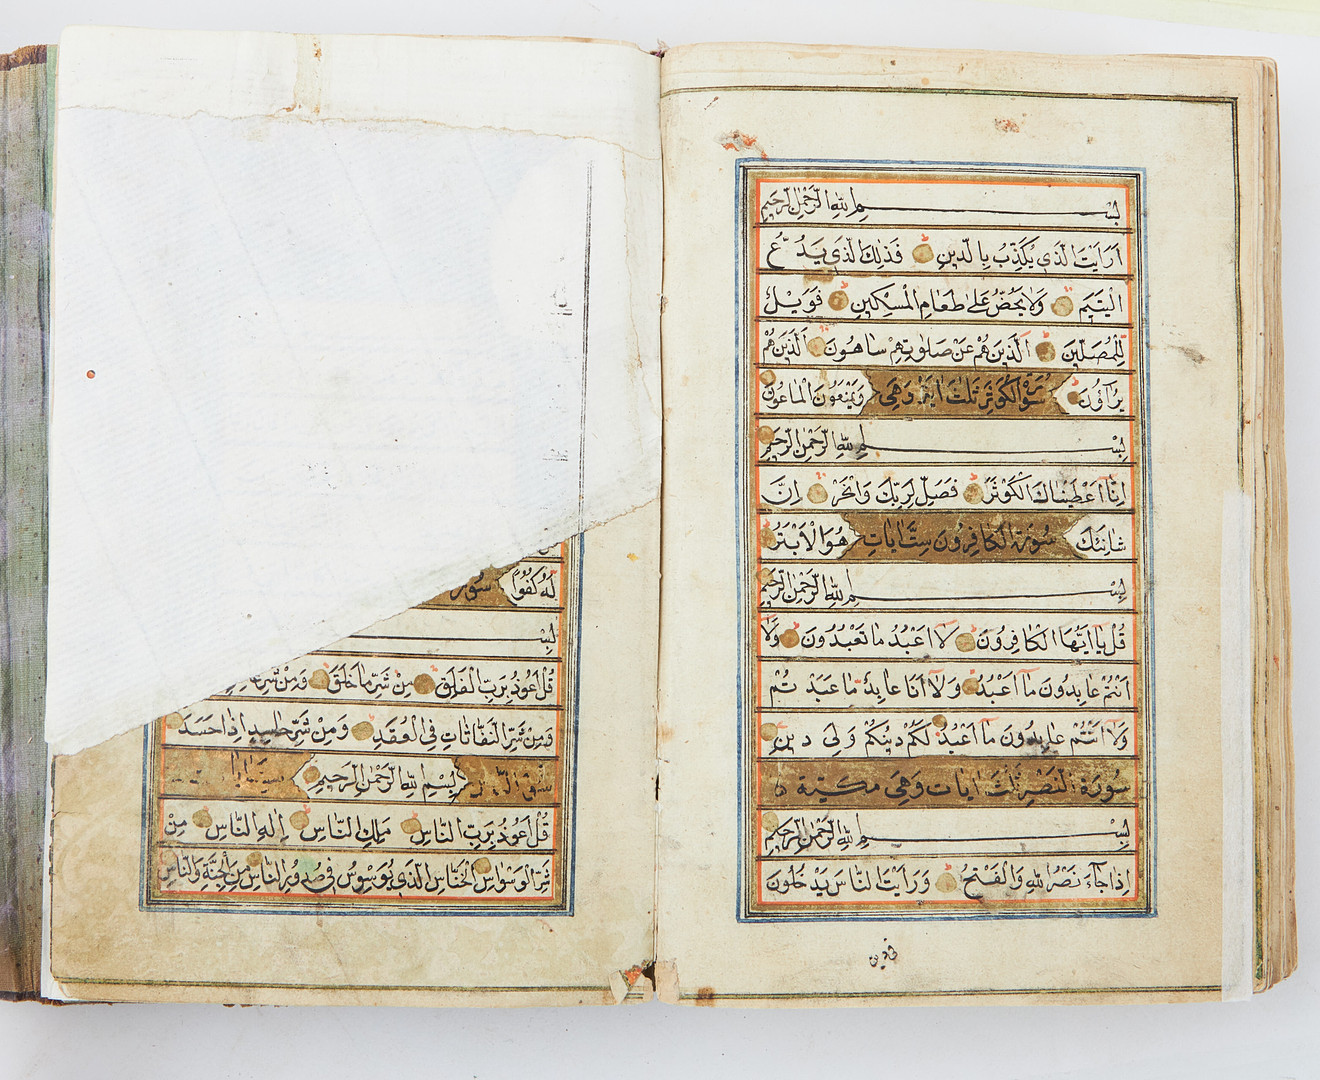 بِسْمِ اللّٰهِ الرَّحْمٰنِ الرَّحِيمِ
اَرَاَيْتَ الَّذِى يُكَذِّبُ بِالدِّينِ فَذٰلِكَ الَّذِى يَدُعُّ
الْيَتِيمَ وَلَا يَحُضُّ عَلٰى طَعَامِ الْمِسْكِينِ فَوَيْلٌ
لِلْمُصَلِّينَ اَلَّذِينَ هُمْ عَنْ صَلٰوتِهِمْ سَاهُونَ اَلَّذِينَ هُمْ
يُرَآؤُنَ وَيَمْنَعُونَ الْمَاعُونَ
سُورَةُ الْكَوْثَرِ ثَلٰثَ اٰيَة وَهِىَ
بِسْمِ اللّٰهِ الرَّحْمٰنِ الرَّحِيمِ
اِنَّا اَعْطَيْنَاكَ الْكَوْثَرَ فَصَلِّ لِرَبِّكَ وَانْحَرْ اِنَّ
شَانِئَكَ هُوَ الْاَبْتَرُ
سُورَةُ الْكَافِرُونَ سِتُّ اٰيَاتٍ
بِسْمِ اللّٰهِ الرَّحْمٰنِ الرَّحِيمِ
قُلْ يَا اَيُّهَا الْكَافِرُونَ لَا اَعْبُدُ مَا تَعْبُدُونَ وَلَا
اَنْتُمْ عَابِدُونَ مَا اَعْبُدُ وَلَا اَنَا عَابِدٌ مَا عَبَدْتُمْ
وَلَا اَنْتُمْ عَابِدُونَ مَا اَعْبُدُ لَكُمْ دِينُكُمْ وَلِىَ دِينِ
سُورَةُ النَّصْرِ ثَلٰثَ اٰيَات وَهِىَ مَكِّيَّة
بِسْمِ اللّٰهِ الرَّحْمٰنِ الرَّحِيمِ
اِذَا جَآءَ نَصْرُ اللّٰهِ وَالْفَتْحُ وَرَاَيْتَ النَّاسَ يَدْخُلُونَ
فى دين
لَهُ كُفُوًا سُورَة
بِسْ
قُلْ اَعُوذُ بِرَبِّ الْفَلَقِ مِنْ شَرِّ مَا خَلَقَ وَمِنْ شَرِّ
وَمِنْ شَرِّ النَّفَّاثَاتِ فِى الْعُقَدِ وَمِنْ شَرِّ حَاسِدٍ اِذَا حَسَدَ
بِسْمِ اللّٰهِ الرَّحْمٰنِ الرَّحِيمِ
قُلْ اَعُوذُ بِرَبِّ النَّاسِ مَلِكِ النَّاسِ اِلٰهِ النَّاسِ مِنْ
شَرِّ الْوَسْوَاسِ الْخَنَّاسِ الَّذِى يُوَسْوِسُ فِى صُدُورِ النَّاسِ مِنَ الْجِنَّةِ وَالنَّاسِ